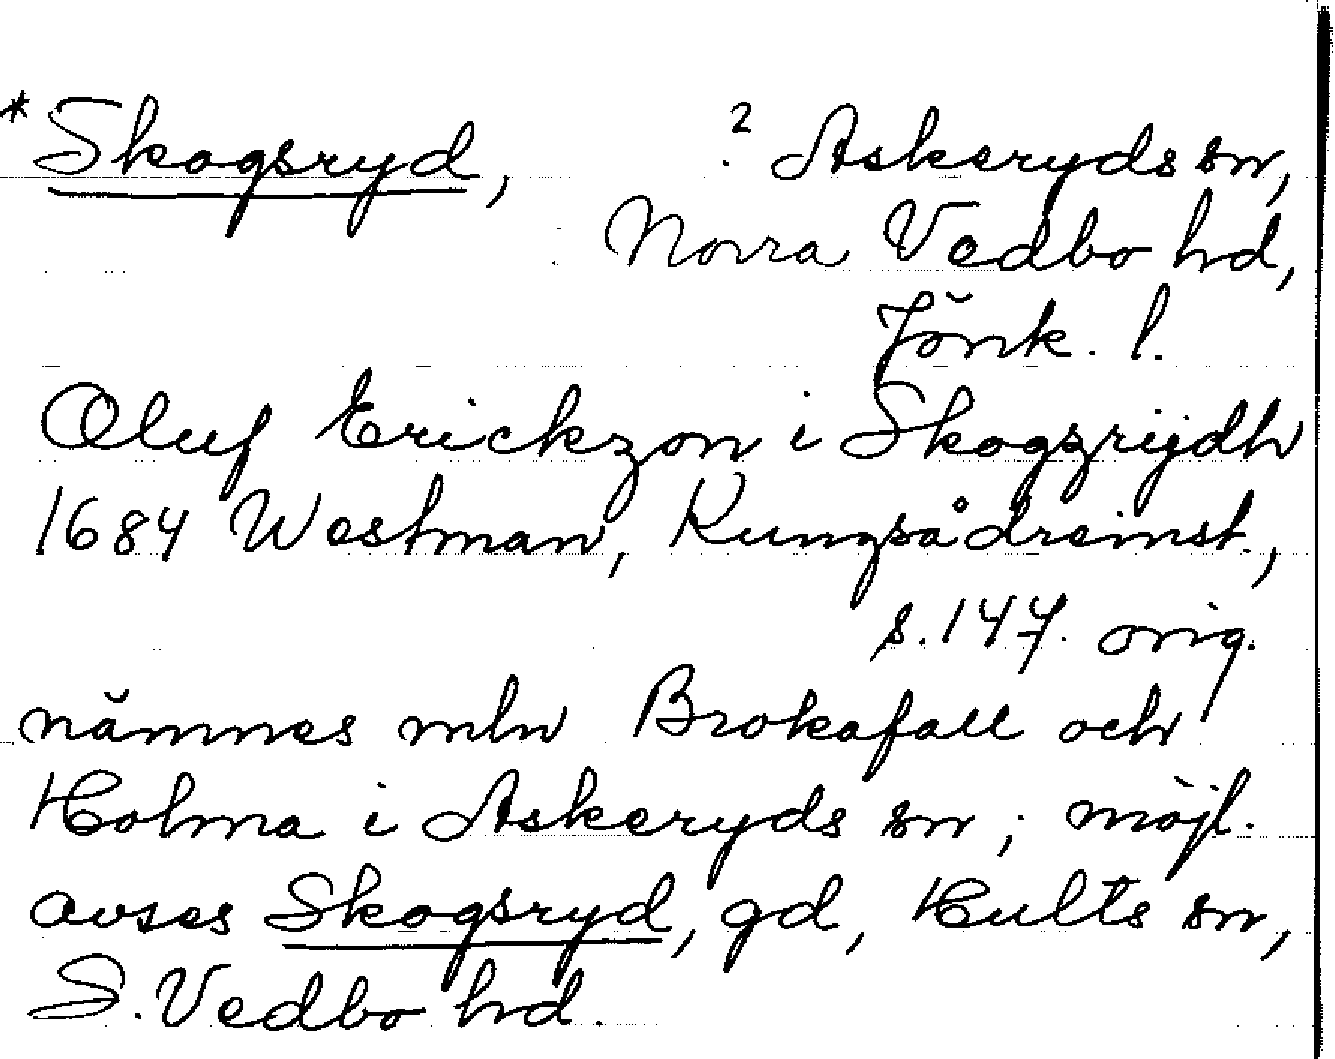 * Skogsryd, ? Askeryds sn,
Norra Vedbo hd,
Jönk. l.
Oluf Erickzon i Skogzrijdh
1684 Westman, Kungsådreinst.,
s. 147. orig.
nämnes mln Brokafall och
Holma i Askeryds sn; möjl.
avses Skogsryd, gd, Hults sn,
S. Vedbo hd.